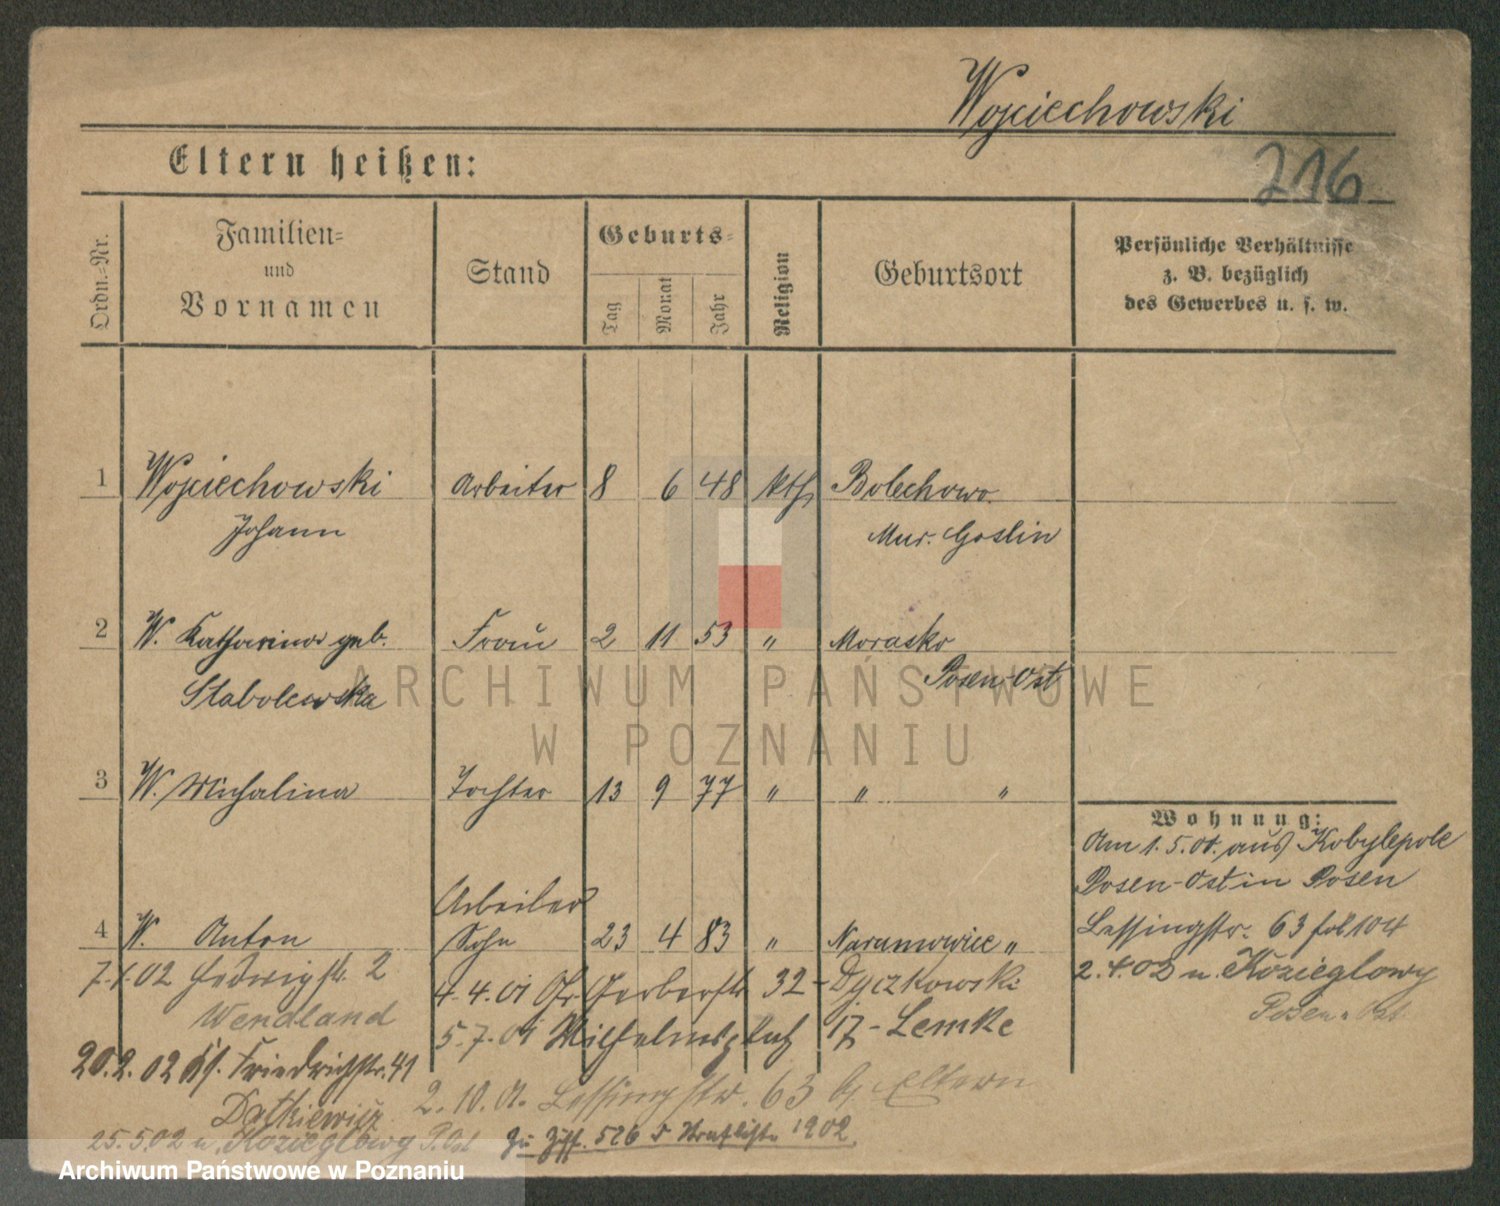 Wojciechowski
Eltern heißen:
216
Ordn.-Nr.
Familien-
und
Vornamen
Stand
Geburts-
Tag
Monat
Jahr
Religion
Geburtsort
Persönliche Verhältnisse
z. B. bezüglich
des Gewerbes u. s. w.
1 Wojciechowski Arbeiter 8 6 48 kth Bolechowo
Johann Mur. Goslin
2 W. Katharina geb. Frau 2 11 53 " Morasko
Stabolewska Posen-Ost
3 W. Michalina Tochter 13 9 77 " " "
Wohnung:
Am 1.5.01. aus Kobylepole
Posen-Ost in Posen
Lessingstr. 63 fol 104
2.4.02 n. Kozieglowy
Posen-Ost
Arbeiter
4 W. Anton Sohn 23 4 83 " Naramowice "
7.1.02 Hedwigstr. 2
Wendland
4.4.01 Gr Gerberstr 32 - Dyczkowski
5.7.01 Wilhelmsplatz 17 - Lemke
20.2.02 St. Friedrichstr. 41
Datkiewicz
2.10.01. Lessingstr. 63 b. Eltern
25.5.02 n. Kozieglowy P. Ost
Zu Ziff. 526 d Strafliste 1902
ARCHIWUM PAŃSTWOWE
W POZNANIU
Archiwum Państwowe w Poznaniu